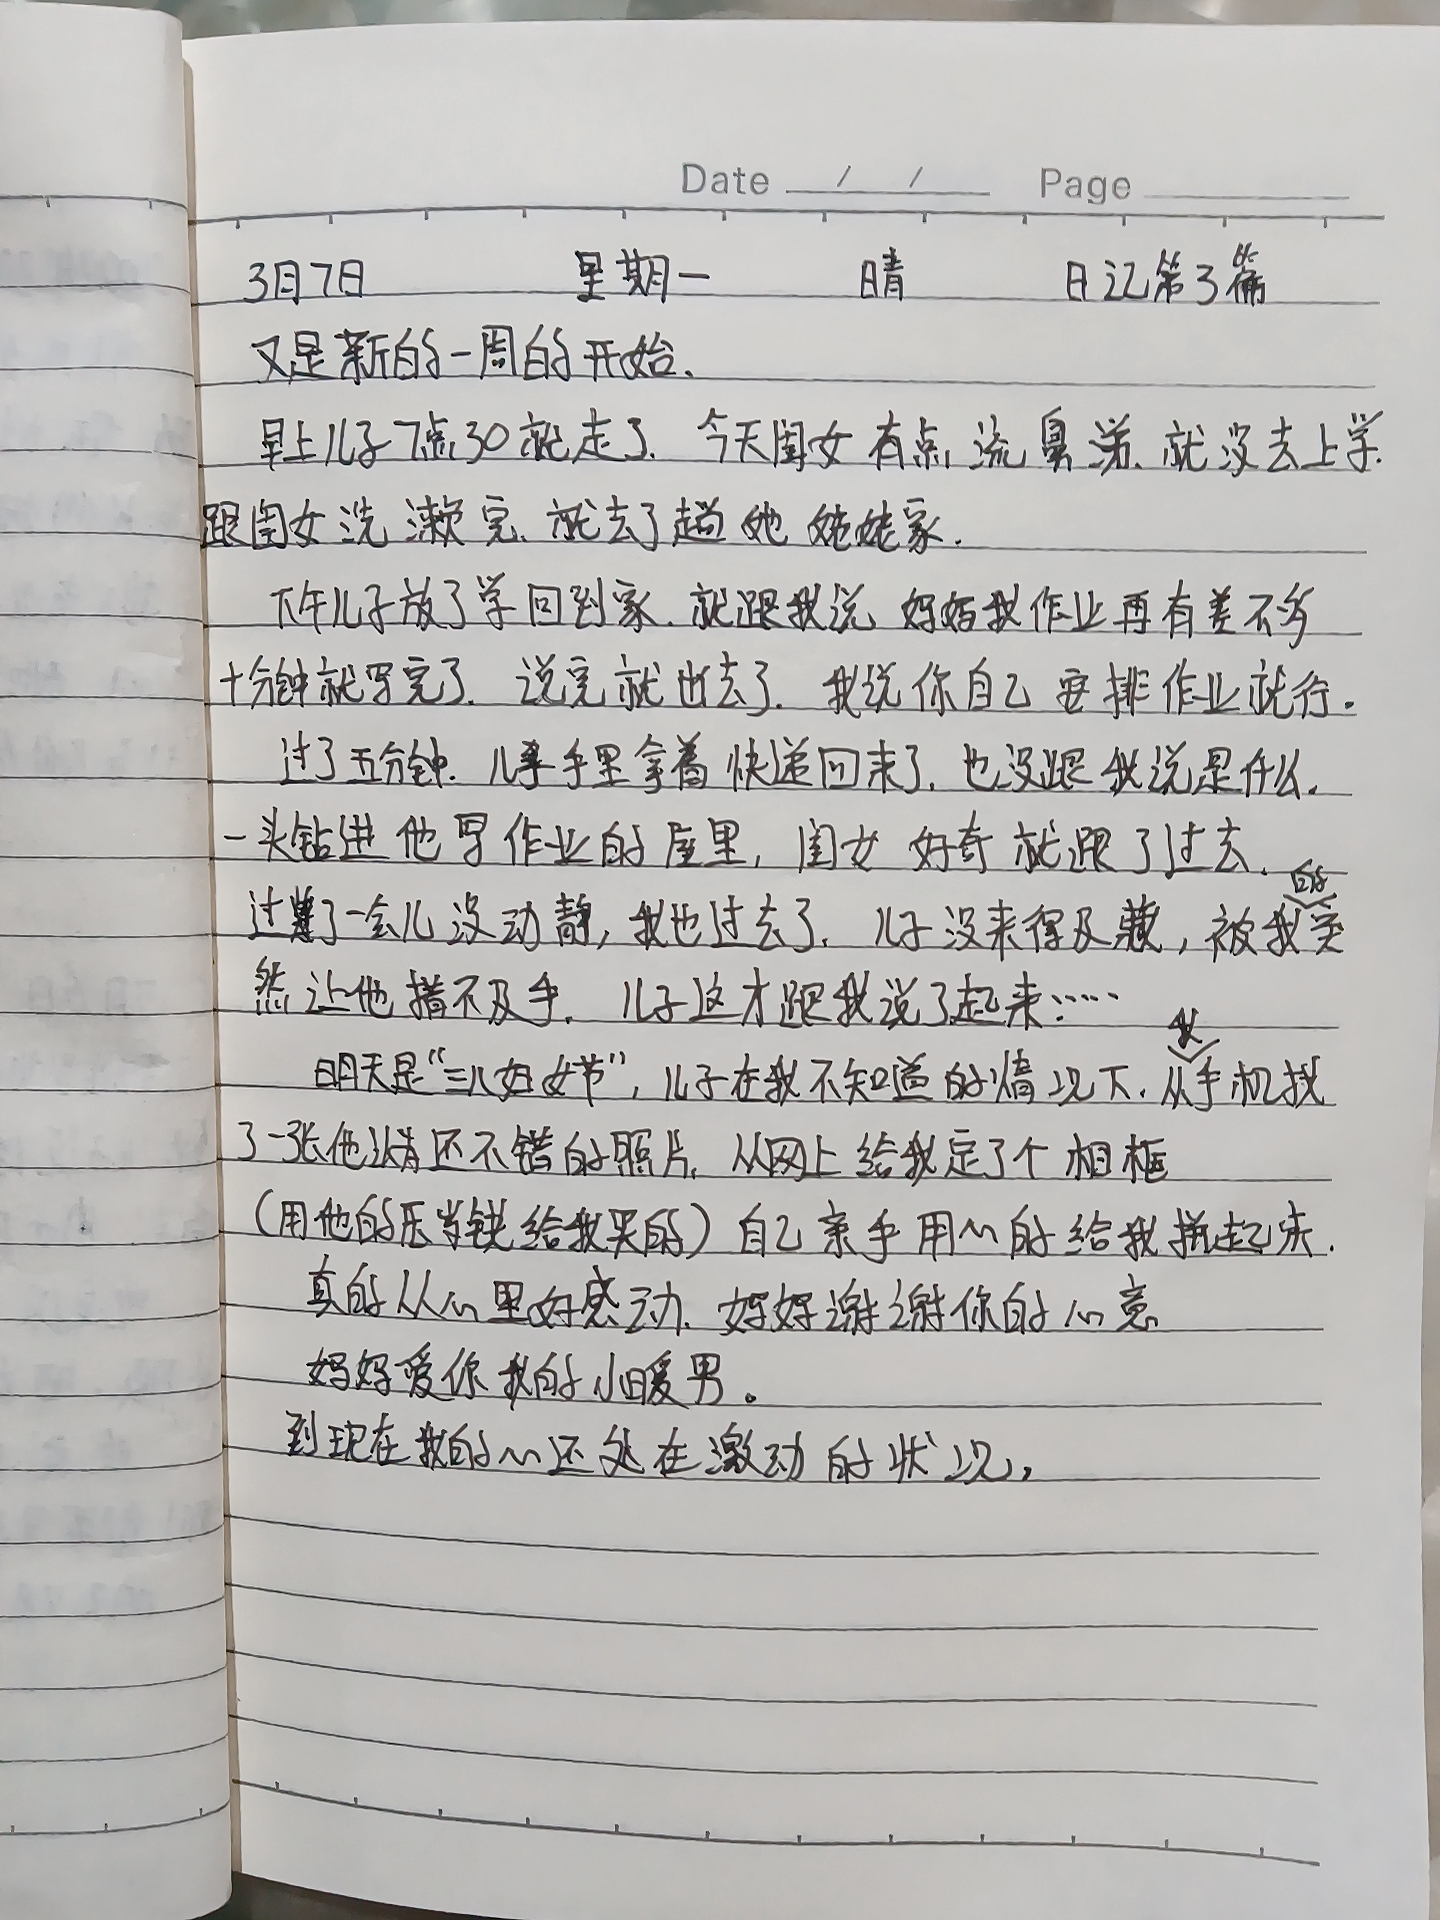 Date / / Page
3月7日 星期一 晴 日记第3篇
又是新的一周的开始.
早上儿子7点30就走了. 今天闺女有点流鼻涕. 就没去上学.
跟闺女洗漱完. 就去了趟她姥姥家.
下午儿子放了学回到家. 就跟我说 妈妈我作业再有差不多
十分钟就写完了. 说完就出去了. 我说你自己安排作业就行。
过了五分钟. 儿子手里拿着快递回来了. 也没跟我说是什么.
一头钻进他写作业的屋里, 闺女好奇就跟了过去.
过了一会儿没动静, 我也过去了. 儿子没来得及藏, 被我的突
然让他措不及手. 儿子这才跟我说了起来:……
明天是“三八妇女节”, 儿子在我不知道的情况下. 从我手机找
了一张他认为还不错的照片, 从网上给我定了个相框
(用他的压岁钱给我买的) 自己亲手用心的给我拼起来.
真的从心里好感动. 妈妈谢谢你的心意
妈妈爱你我的小暖男。
到现在我的心还处在激动的状况,